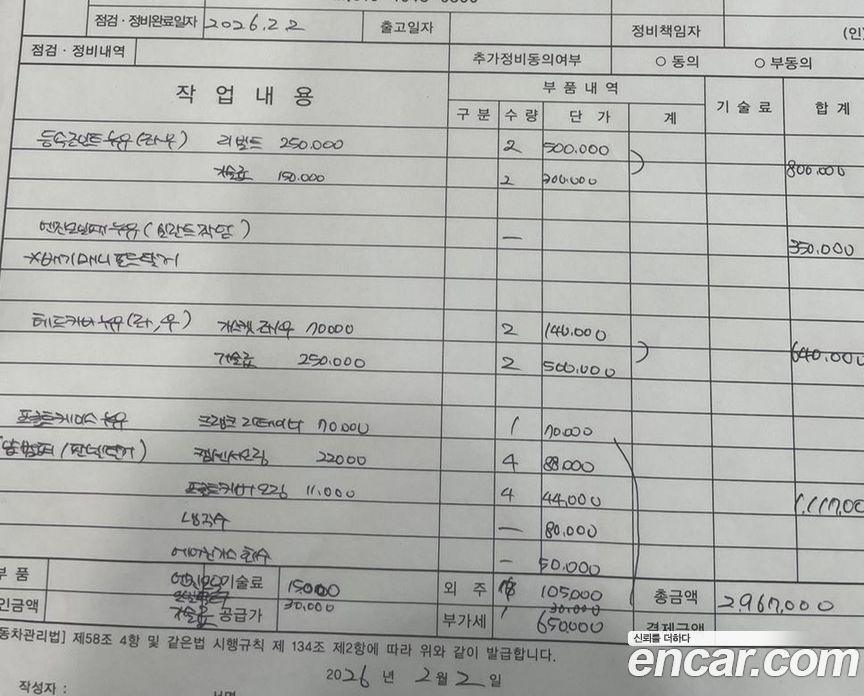 점검·정비완료일자 2026.2.2 출고일자 정비책임자 (인)
점검·정비내역 추가정비동의여부 ○ 동의 ○ 부동의
작 업 내 용 부 품 내 역 기 술 료 합 계
구 분 수 량 단 가 계
등속조인트 누유(좌,우) 리빌드 250.000 2 500.000
기술료 150.000 2 300.000 800.000
엔진오일팬 누유(실란트작업) — 350.000
*배기매니폴드탈거
헤드커버 누유(좌,우) 가스켓 좌/우 70000 2 140.000
기술료 250.000 2 500.000 640.000
프론트케이스 누유 크랭크 리테이너 70.000 1 70.000
22000 4 88.000
프론트커버 오링 11.000 4 44,000 1,117,00
냉각수 — 80.000
에어컨가스 회수 - 50.000
부 품 기술료 15000 외 주 105,000 총금액 2,967,000
인금액 기술료 공급가 30,000 부가세 1 30.000 결제금액
650,000
동차관리법] 제58조 4항 및 같은법 시행규칙 제 134조 제2항에 따라 위와 같이 발급합니다.
신뢰를 더하다
encar.com
2026 년 2 월 2 일
작성자 : 서명